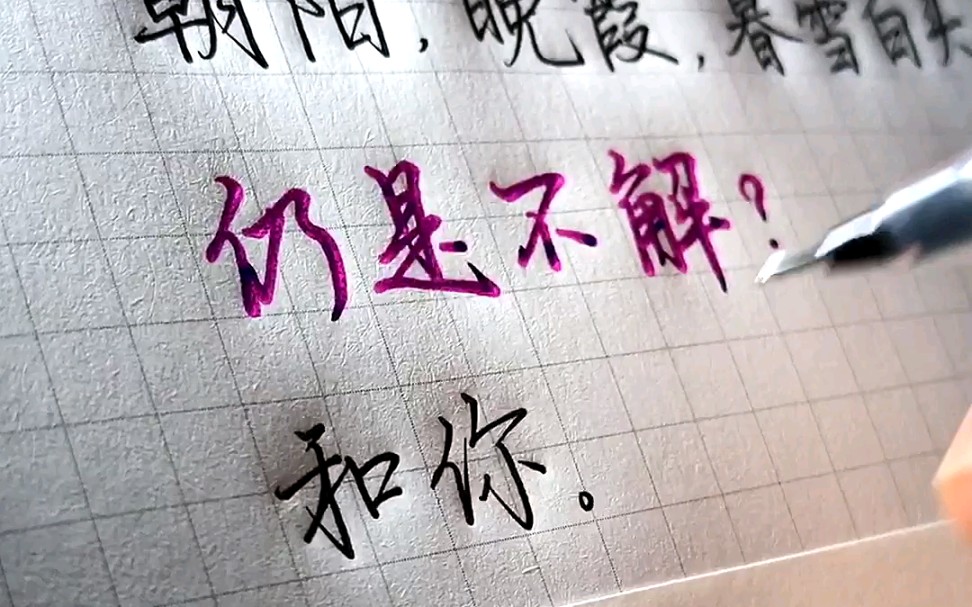 朝阳，晚霞，春雪白头
仍是不解？
和你。